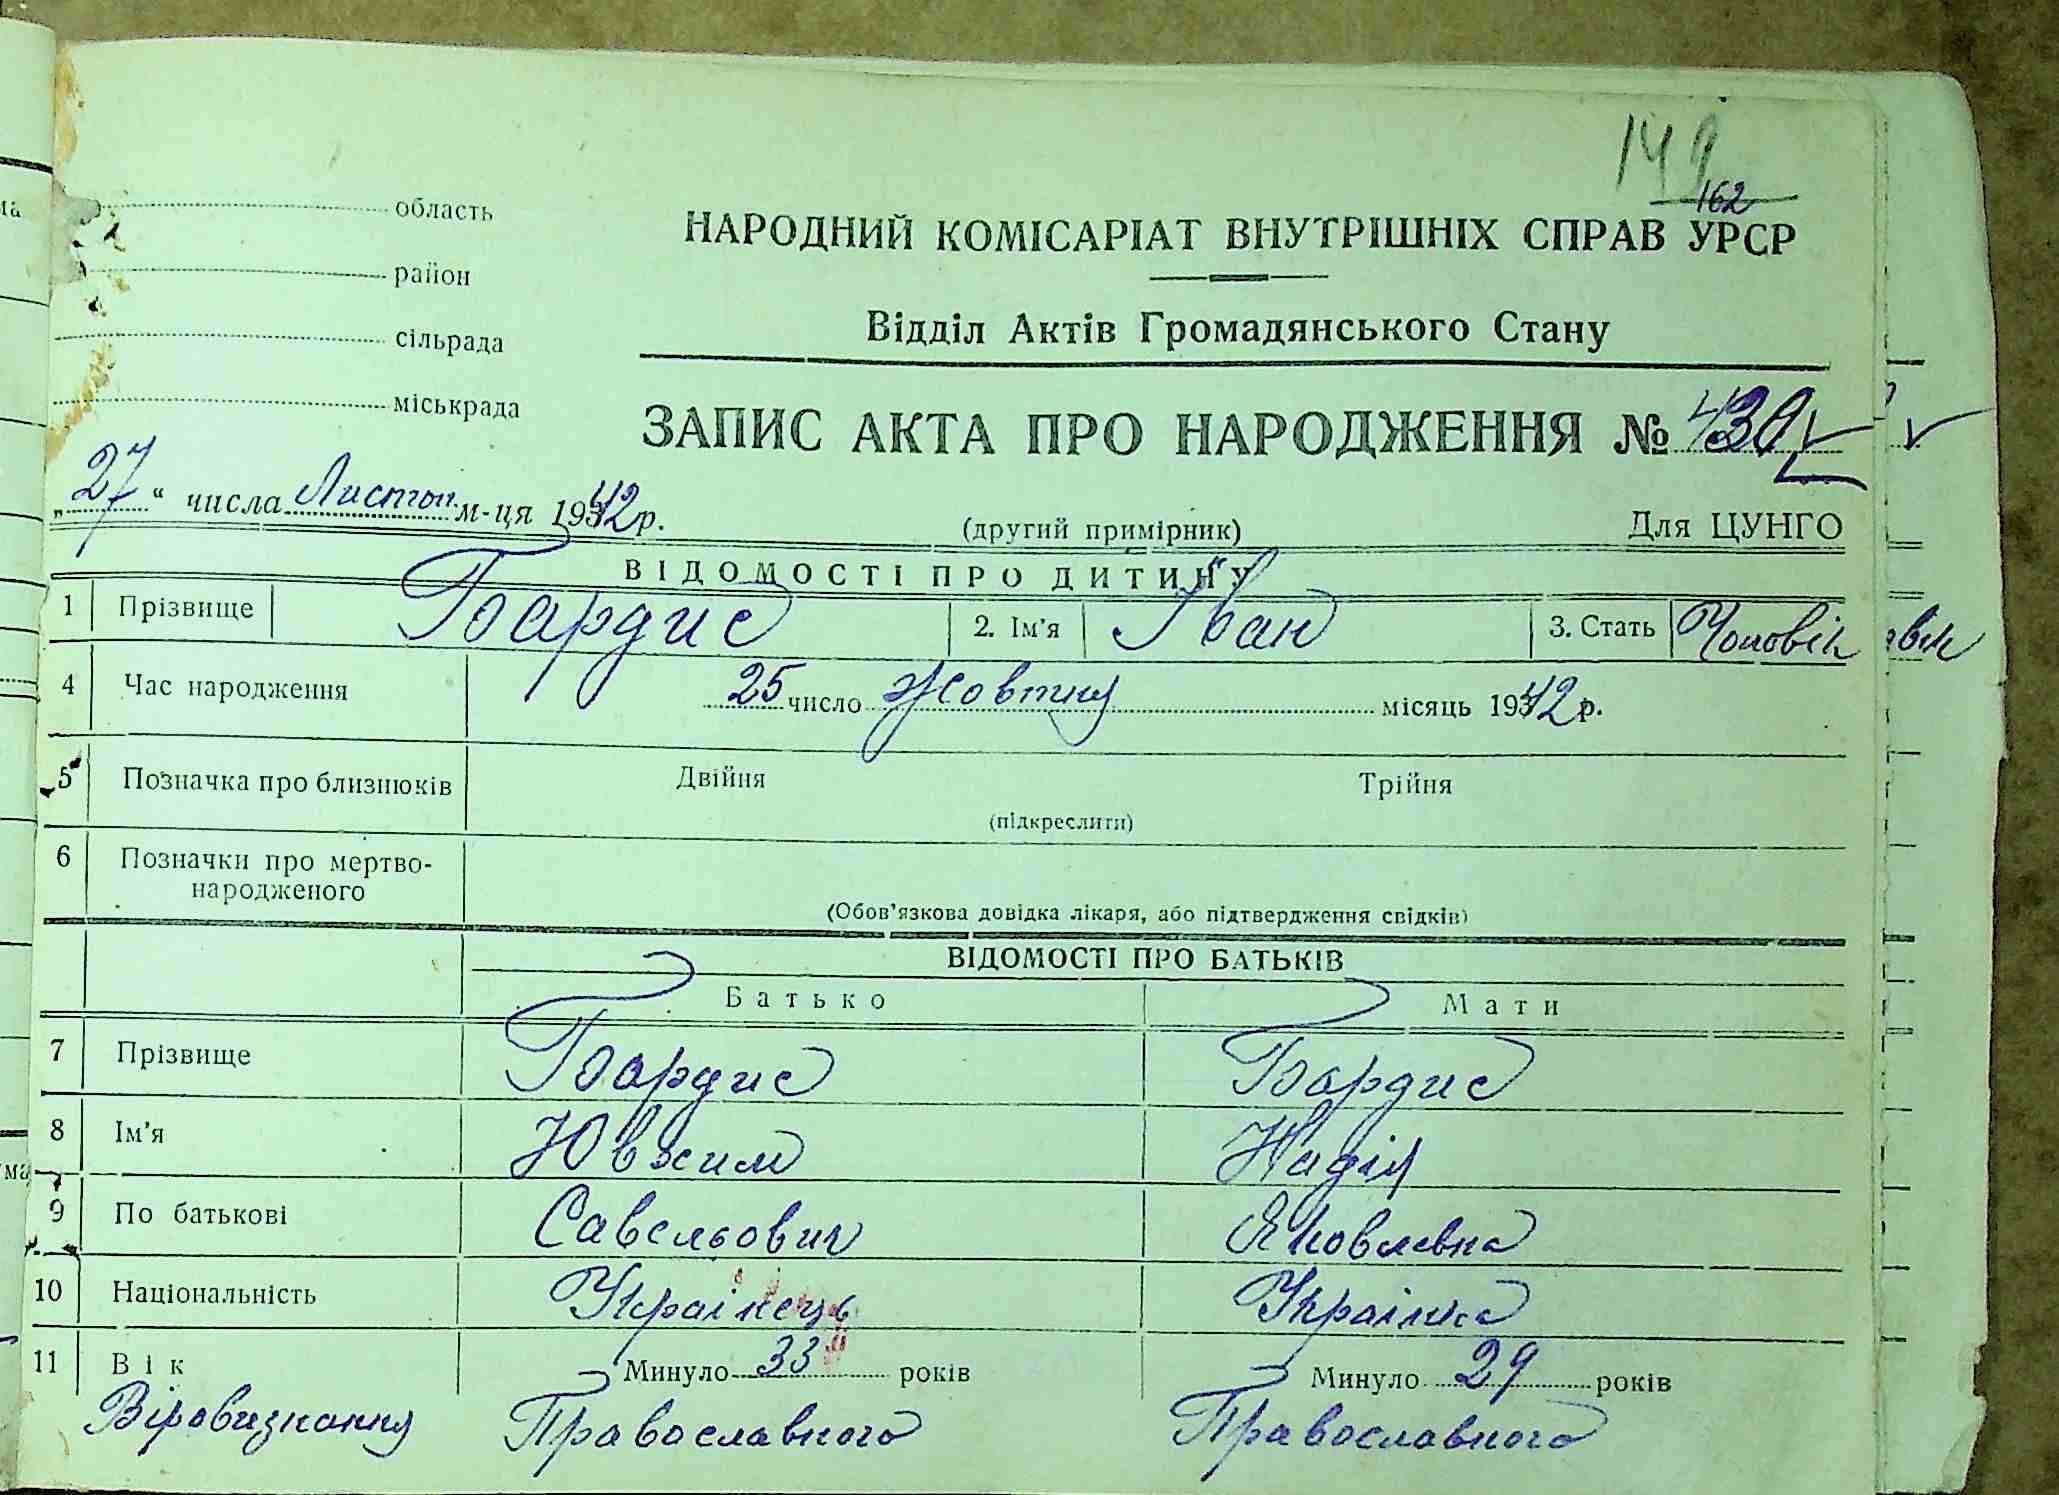 149
162
область
район
сільрада
міськрада
НАРОДНИЙ КОМІСАРІАТ ВНУТРІШНІХ СПРАВ УРСР
Відділ Актів Громадянського Стану
ЗАПИС АКТА ПРО НАРОДЖЕННЯ №
„27“ числа Листоп. м-ця 1942 р.
(другий примірник)
Для ЦУНГО
ВІДОМОСТІ ПРО ДИТИНУ
1 Прізвище Бардис 2. Ім'я Іван 3. Стать Чоловік
4 Час народження 25 число Жовтня місяць 1942 р.
5 Позначка про близнюків Двійня Трійня
(підкреслити)
6 Позначки про мертво-
народженого
(Обов'язкова довідка лікаря, або підтвердження свідків)
ВІДОМОСТІ ПРО БАТЬКІВ
Батько Мати
7 Прізвище Бардис Бардис
8 Ім'я Ювхим Надія
9 По батькові Савельович Яковлевна
10 Національність Українець Українка
11 Вік Минуло 33 років Минуло 29 років
Віровизнання Православного Православного